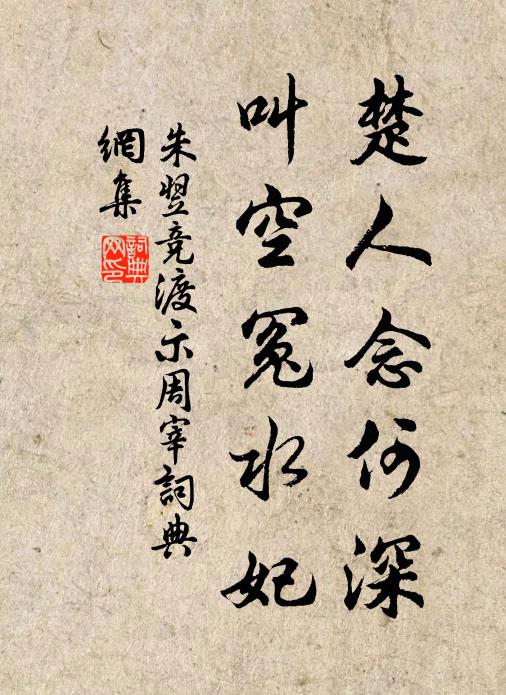 楚人念何深
叫空冤水妃
朱翌竞渡示周宰詞典
網集
詞典
网印